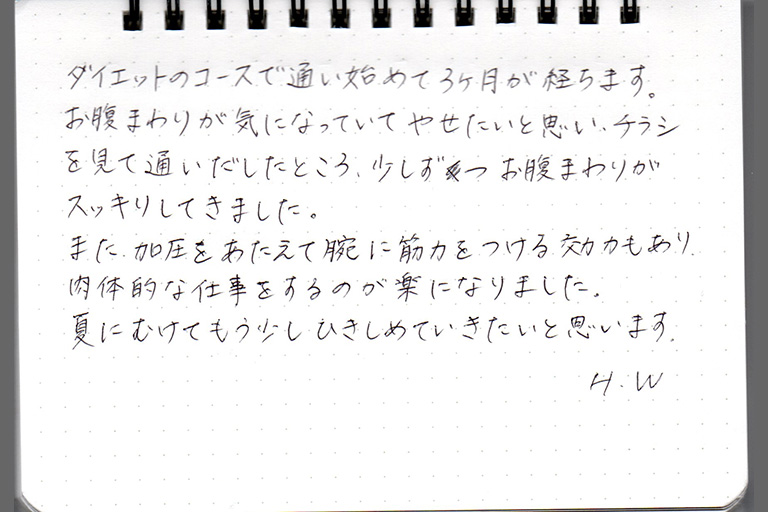 ダイエットのコースで通い始めて3ヶ月が経ちます。
お腹まわりが気になっていてやせたいと思い、チラシ
を見て通いだしたところ、少しずつお腹まわりが
スッキリしてきました。
また、加圧をあたえて腕に筋力をつける効力もあり、
肉体的な仕事をするのが楽になりました。
夏にむけてもう少しひきしめていきたいと思います。
H.W